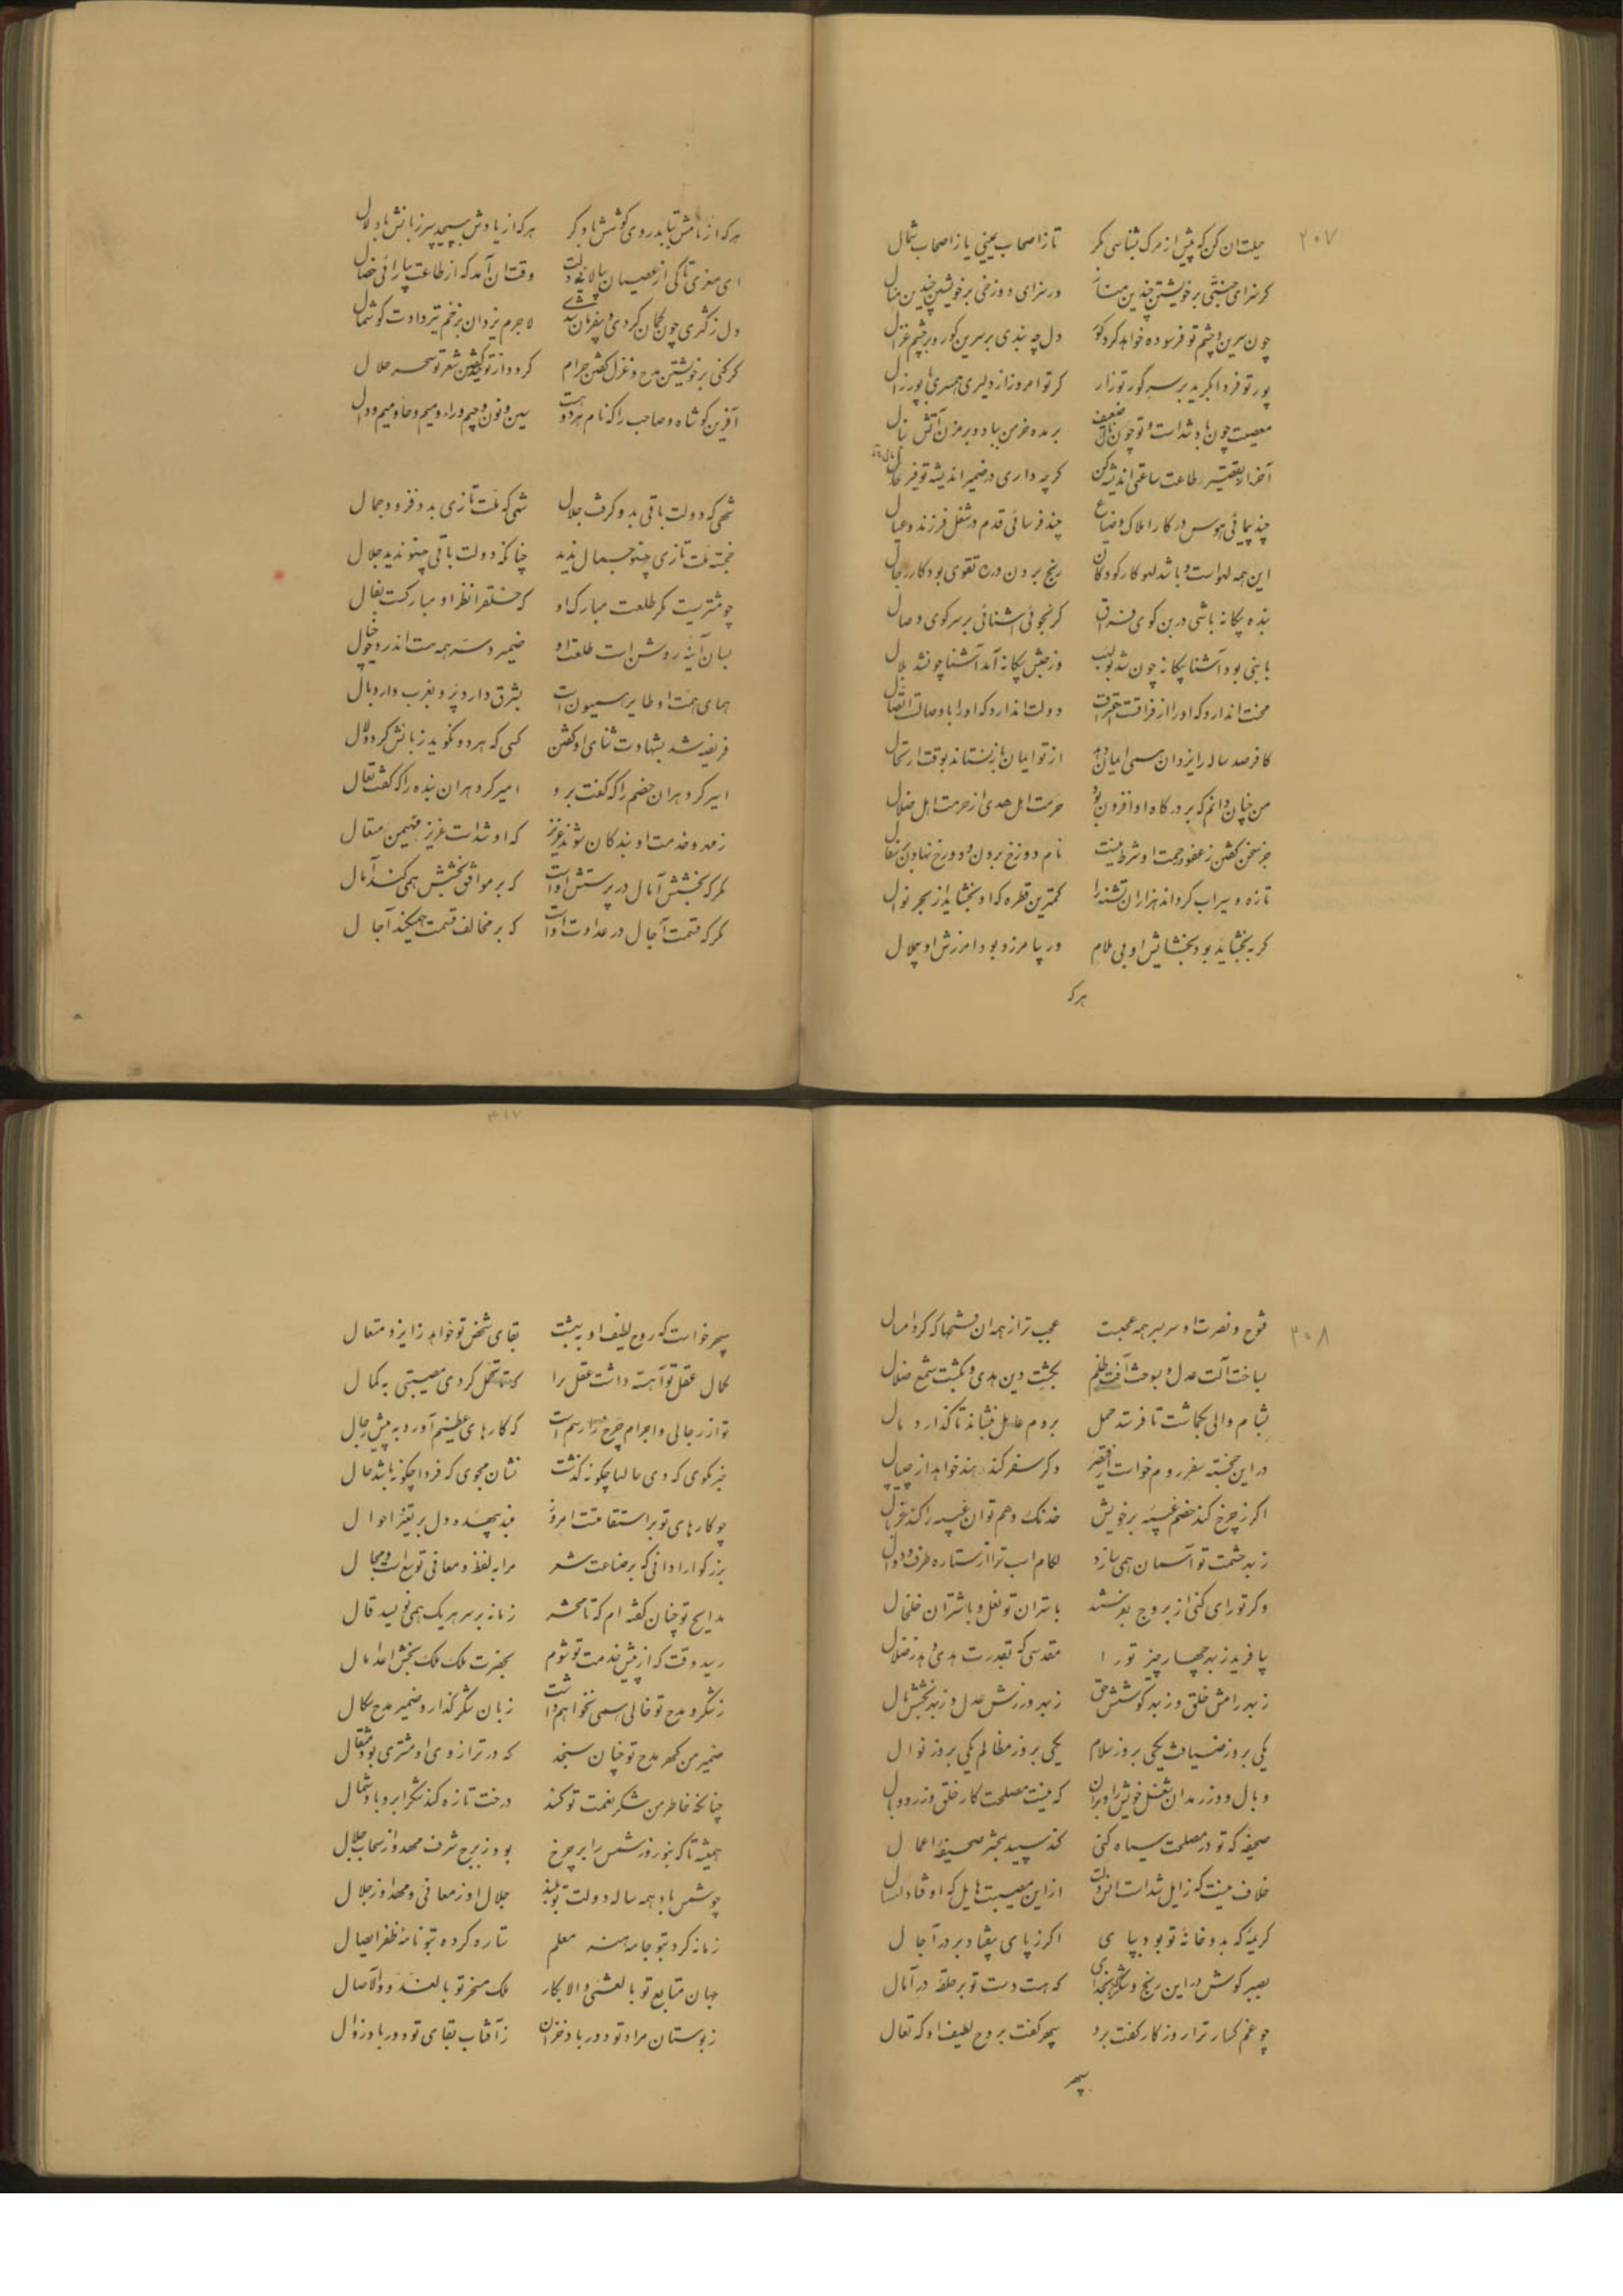 ۲۰۷
حیلت ان کن که پیش از مرک بشناسی مکر تا ز اصحاب یمینی یا ز اصحاب شمال
کر سزای جنتی بر خویشتن چندین مناز ور سزای دوزخی بر خویشتن چندین منال
چون سرین و چشم تو فرسوده خواهد کرد کور دل چه بندی بر سرین کور و بر چشم غزال
پور تو فردا بکرید بر سر کور تو زار کر تو امروز از دلیری همسری با پور زال
معصیت چون باد شد است و تو چون نال ضعیف بر مده خرمن بباد و بر مزن آتش بنال
آخر از تقصیر طاعت ساعتی اندیشه کن کرچه داری در ضمیر اندیشه توفیر مال
چند پیمائی هوس در کار املاک و ضیاع چند فرسائی قدم در شغل فرزند و عیال
این همه لهو است و باشد لهو کار کودکان رنج بردن در ره تقوی بود کار رجال
بنده بیکانه باشی در بن کوی فراق کر نجوئی آشنائی بر سر کوی وصال
با نبی بود آشنا بیکانه چون شد بولهب وز حبش بیکانه آمد آشنا چون شد بلال
محنت اندارد که او را از فراقت احتراق دولت اندارد که او را با وصالت اتصال
کافر صد ساله را یزدان همی ایمان دهد از تو ایمان باز نستاند بوقت ارتحال
من چنان دانم که بر درکاه او افزون بود حرمت اهل هدی از حرمت اهل ضلال
جز سخن کفتن ز عفو و رحمت او شرط نیست نام دوزخ بردن و دوزخ نهادن
تازه و سیراب کرداند هزاران تشنه را کمترین قطره که او بخشاید از بحر نوال
کر ببخشاید بود بخشایش او بی ملام ور بیامرزد بود امرزش او بیملال
هرکه
هرکه از نامش بتابد روی کوشش باد کر هرکه از یادش بپیچد سر زبانش باد لال
ای معزی تا کی از عصیان وقت ان آمد که از طاعت بیارائی خصال
دل ز کژی چون کمان کردی و بیفرمان شدی لاجرم یزدان بزخم تیر دادت کوشمال
کر کنی بر خویشتن مدح و غزل کفتن حرام کردد از توحید کفتن شعر تو سحر حلال
آفرین کو شاه و صاحب را که نام هر دو هست سین و نون و جیم و راء و میم و حا و میم و دال
شهی که دولت باقی بدو کرفت جلال شهی که ملت تازی بدو فزود جمال
خجسته ملت تازی چنو جمال ندید چنانکه دولت باقی چنو ندید جلال
چو مشتریست مکر طلعت مبارک او که خلق را نظر او مبارکست بفال
بسان آینه روشن است طلعت او ضمیر و سر همه هست اندرو چو خیال
همای همت او طایر همیون است بشرق دارد پر و بغرب دارد بال
فریضه شد بشهادت ثنای او کفتن کسی که هر دو نکوید زبانش کردد لال
اسیر کرد هر ان خصم را که کفت برو امیر کرد هر ان بنده را که کفت تعال
زمهر و خدمت او بندکان شوند عزیز که او شد است عزیز مهیمن متعال
مکر که بخشش آمال در پرستش اوست که بر موافق بخشش همی کند آمال
مکر که قسمت آجال در عداوت اوست که بر مخالف قسمت همیکند آجال
۲۰۸
فتوح و نصرت او سربسر همه عجبست عجب تر از همه ان فتحها که کرد امسال
بساخت آلت عدل و بسوخت آفت ظلم بکشت دین هدی و بکشت شمع ضلال
بشام والی بکماشت تا فرستد حمل بروم عامل بنشاند تا کذارد مال
در این خجسته سفر روم خواست از قیصر دکر سفر کند و هند خواهد از جیپال
اکر ز چرخ کند خصم غیبه بر خویش خدنک وهم تو ان غیبه را کند غربال
ز بهر حشمت تو آسمان همی سازد لکام اسب ترا از ستاره طرف و دوال
وکر تو رای کنی از بروج بفرستد باستران تو نعل و باشتران خلخال
بیافرید ز بهر چهار چیز تو را مقدسی که بقدرت هدی دهد ز ضلال
ز بهر رامش خلق و ز بهر کوشش حق ز بهر ورزش عدل و ز بهر بخشش مال
یکی بروز ضیافت یکی بروز سلام یکی بروز مظالم یکی بروز نوال
وبال و وزر مدان شغل خویش را و بدان که نیست مصلحت کار خلق وزر و وبال
صحیفه که تو در مصلحت سیاه کنی کند سپید بحشر صحیفه اعمال
خلاف نیست که زایل شد است از این مصیبت هایل که اوفتاد امسال
کریمه که بدو خانه تو بود بپای اکر ز پای بیفتاد بر در آجال
بصبر کوش در این رنج و که هست دست تو بر حلقه در آمال
چو غم کسار ترا روزکار کفت برو سپهر کفت بروح لطیف او که تعال
سپهر
۴۱۷
سپهر خواست که روح لطیف او به بهشت بقای شخص تو خواهد ز ایزد متعال
کمال عقل تو آهسته داشت عقل ترا که تا تحمل کردی مصیبتی به کمال
تو از رجالی و اجرام چرخ را رسم است که کارهای عظیم آورد به پیش رجال
خبر مکوی که دی حالها چکونه کذشت نشان مجوی که فردا چکونه باشد حال
چو کارهای تو بر استقامتست امروز منه بیهده دل بر تغیر احوال
بزرکوارا دانی که بر صناعت شعر مرا به لفظ و معانی توسع است و مجال
مدایح تو چنان کفته ام که تا محشر زمانه بر سر هر یک همی نویسد قال
رسید وقت که از پیش خدمت تو شوم بحضرت ملک ملک بخش اعدا مال
ز شکر و مدح تو خالی همی نخواهم داشت زبان شکر کذار و ضمیر مدح سکال
ضمیر من کهر مدح تو چنان سنجد که در ترازوی او مشتری بود مثقال
چنانکه خاطر من شکر نعمت تو کند درخت تازه کند شکر ابر و باد شمال
همیشه تا که بنوروز شمس را بر چرخ بود ز برج شرف مهد و از سحاب جلال
چو شمس باد همه ساله دولت تو بلند جلال او ز معانی و مهد او ز جلال
زمانه کرد بتو جامه هنر معلم ستاره کرده بتو نامه ظفر ایصال
جهان متابع تو بالعشی والابکار ملک مسخر تو بالغدو والآصال
ز بوستان مراد تو دور باد خزان ز آفتاب بقای تو دور باد زوال